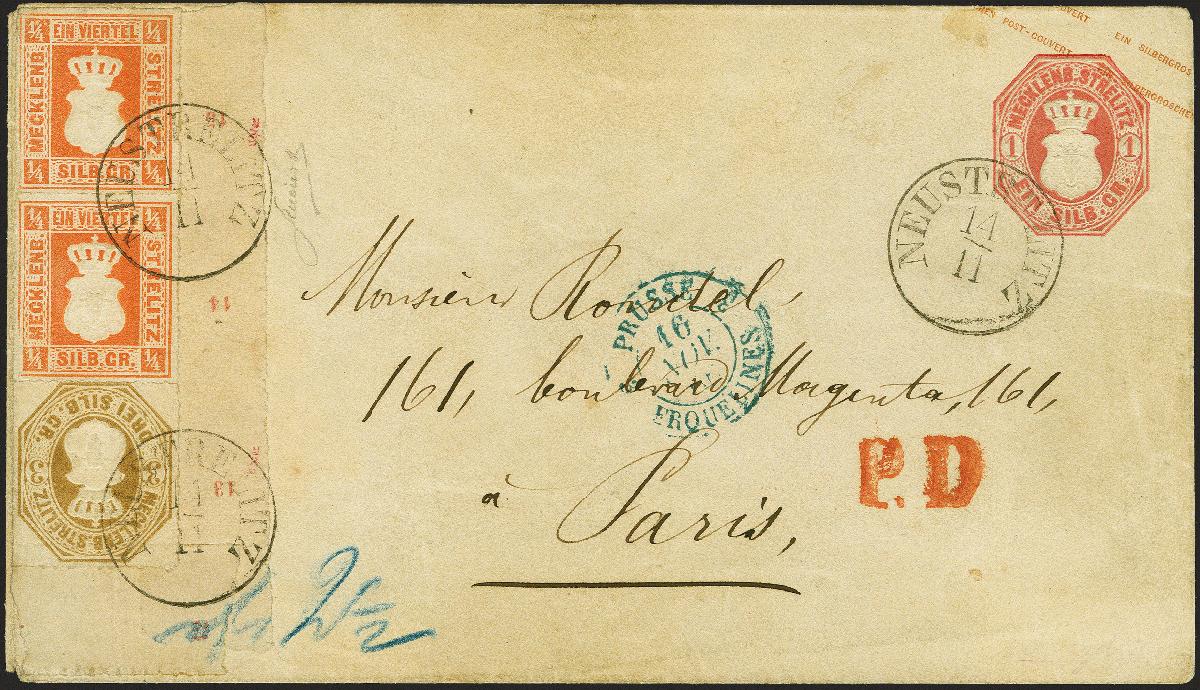 1/4 EIN VIERTEL 1/4
MECKLENB.
STRELITZ
1/4 SILB.GR. 1/4
1/4 EIN VIERTEL 1/4
MECKLENB.
STRELITZ
1/4 SILB.GR. 1/4
DREI SILB. GR.
3 3
MECKLENB. STRELITZ
NEUSTRELITZ
14
11
14
13
POST-COUVERT
EIN SILBERGROS
SILBERGROSCHE
MECKLENB. STRELITZ
1 1
EIN SILB. GR.
NEUSTRELITZ
14
11
PRUSSE
16
NOV.
ERQUELINES
Monsieur
161, boulevard Magenta, 161,
à Paris,
P.D
NEUSTRELITZ
11
2